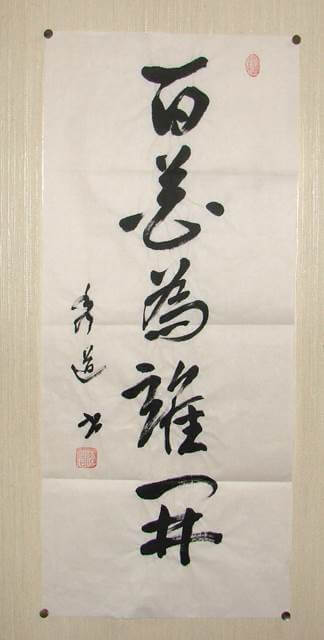 百花為誰開
秀道